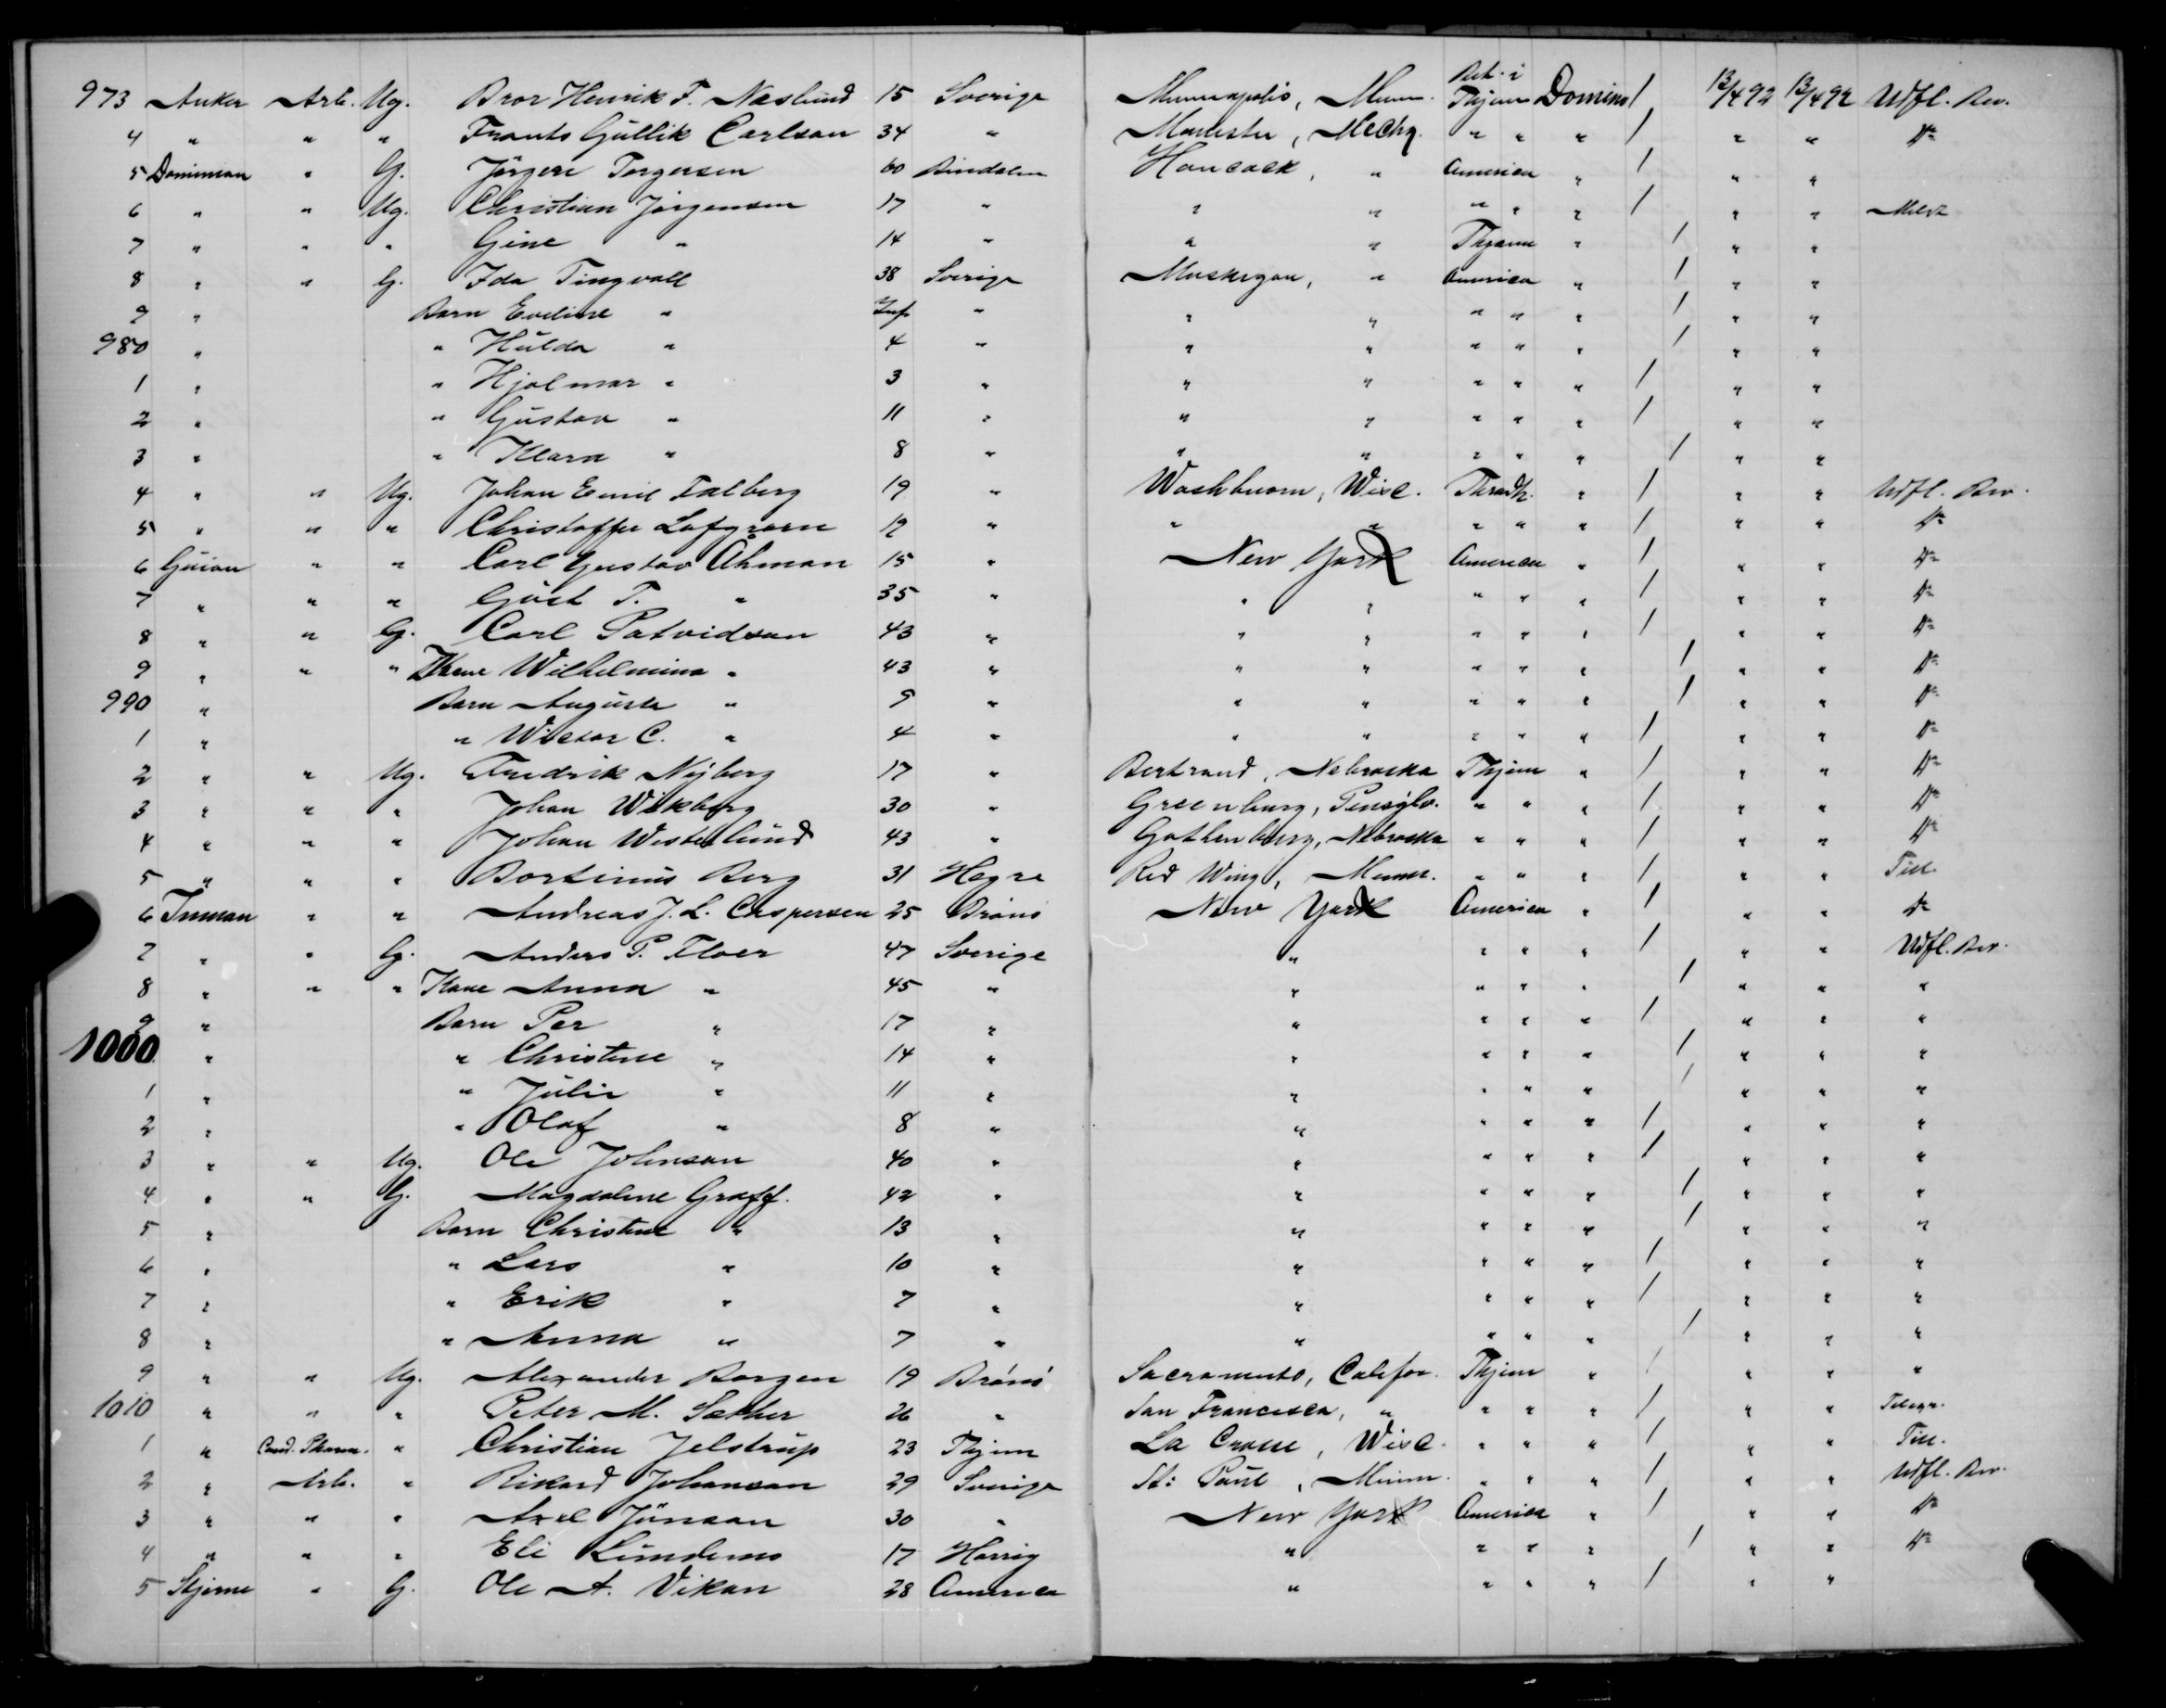 Bet. i
973 Anker Arb. Ug. Bror Henrik F. Naslund 15 Sverige Minneapolis, Minn. Thjem Domino / 13/4 92 13/4 92 Udfl. Bev.
4 " " " Frants Gullik Carlson 34 " " " " / " " Do
5 Dominion " G. Jörgen Torgersen 60 Bindalen Hancock, " America " / " "
6 " " Ug. Christian Jörgensen 17 " " " " " " / " "
7 " " " Gine " 14 " " " Thjem " / " "
8 " " G. Ida Tingvall 38 Sverige Muskegon, " America " / " "
9 " Barn Eveline " Inf. " " " " " " / " "
980 " " Hulda " 4 " " " " " " / " "
1 " " Hjalmar " 3 " " " " " " / " "
2 " " Gustav " 11 " " " " " " / " "
3 " " Klara " 8 " " " " " " / " "
4 " " Ug. Johan Emil Falberg 19 " Washburn, Wisc. Thradh. " / " " Udfl. Bev.
5 " " " Christoffer Lofgren 19 " " " " " " / " " Do
6 Guion " " Carl Gustav Åhman 15 " New York America " / " " Do
7 " " " Gust T. " 35 " " " " " " / " " Do
8 " " G. Carl Patvidson 43 " " " " " " / " " Do
9 " " " Kone Wilhelmina " 43 " " " " " " / " " Do
990 " Barn Augusta " 9 " " " " " " / " " Do
1 " " Victor C. " 4 " " " " " " / " " Do
2 " " Ug. Fredrik Nyberg 17 " Bertrand, Nebraska Thjem " / " " Do
3 " " " Johan Wikberg 30 " Greenburg, Pensylv. " " " / " " Do
4 " " " Johan Westerlund 43 " Gothenburg, Nebraska " " " / " " Do
5 " " " Bortinus Berg 31 Hegre Red Wing, Minn. " " " / " " Till.
6 Inman " " Andreas J. L. Caspersen 25 Brönö New York America " / " " Do
7 " " G. Anders P. Floer 47 Sverige " " " " / " " Udfl. Bev.
8 " " " Kone Anna " 45 " " " " " / " " "
9 " Barn Per " 17 " " " " " / " " "
1000 " " Christine " 14 " " " " " / " " "
1 " " Julie " 11 " " " " " / " " "
2 " " Olaf " 8 " " " " " / " " "
3 " " Ug. Ole Johnson 40 " " " " " / " " "
4 " " G. Magdalene Graff. 42 " " " " " / " " "
5 " Barn Christine " 13 " " " " " / " " "
6 " " Lars " 10 " " " " " / " " "
7 " " Erik " 7 " " " " " / " " "
8 " " Anna " 7 " " " " " / " " "
9 " " Ug. Alexander Borgen 19 Brönö Sacramento, Califor. Thjem " / " " "
1010 " " " Peter M. Sæther 26 " San Francisca, " " " " / " " Telegr.
1 " Cand. Pharm. " Christian Jelstrup 23 Thjem La Crosse, Wisc. " " " / " " Till.
2 " Arb. " Rikard Johanson 29 Sverige St: Paul, Minn. " " " / " " Udfl. Bev.
3 " " " Axel Jönson 30 " New York America " / " " Do
4 " " " Eli Lundemo 17 " " " " / " " Do
5 Stjerne " G. Ole A. Vikan 28 America " " " " / " "